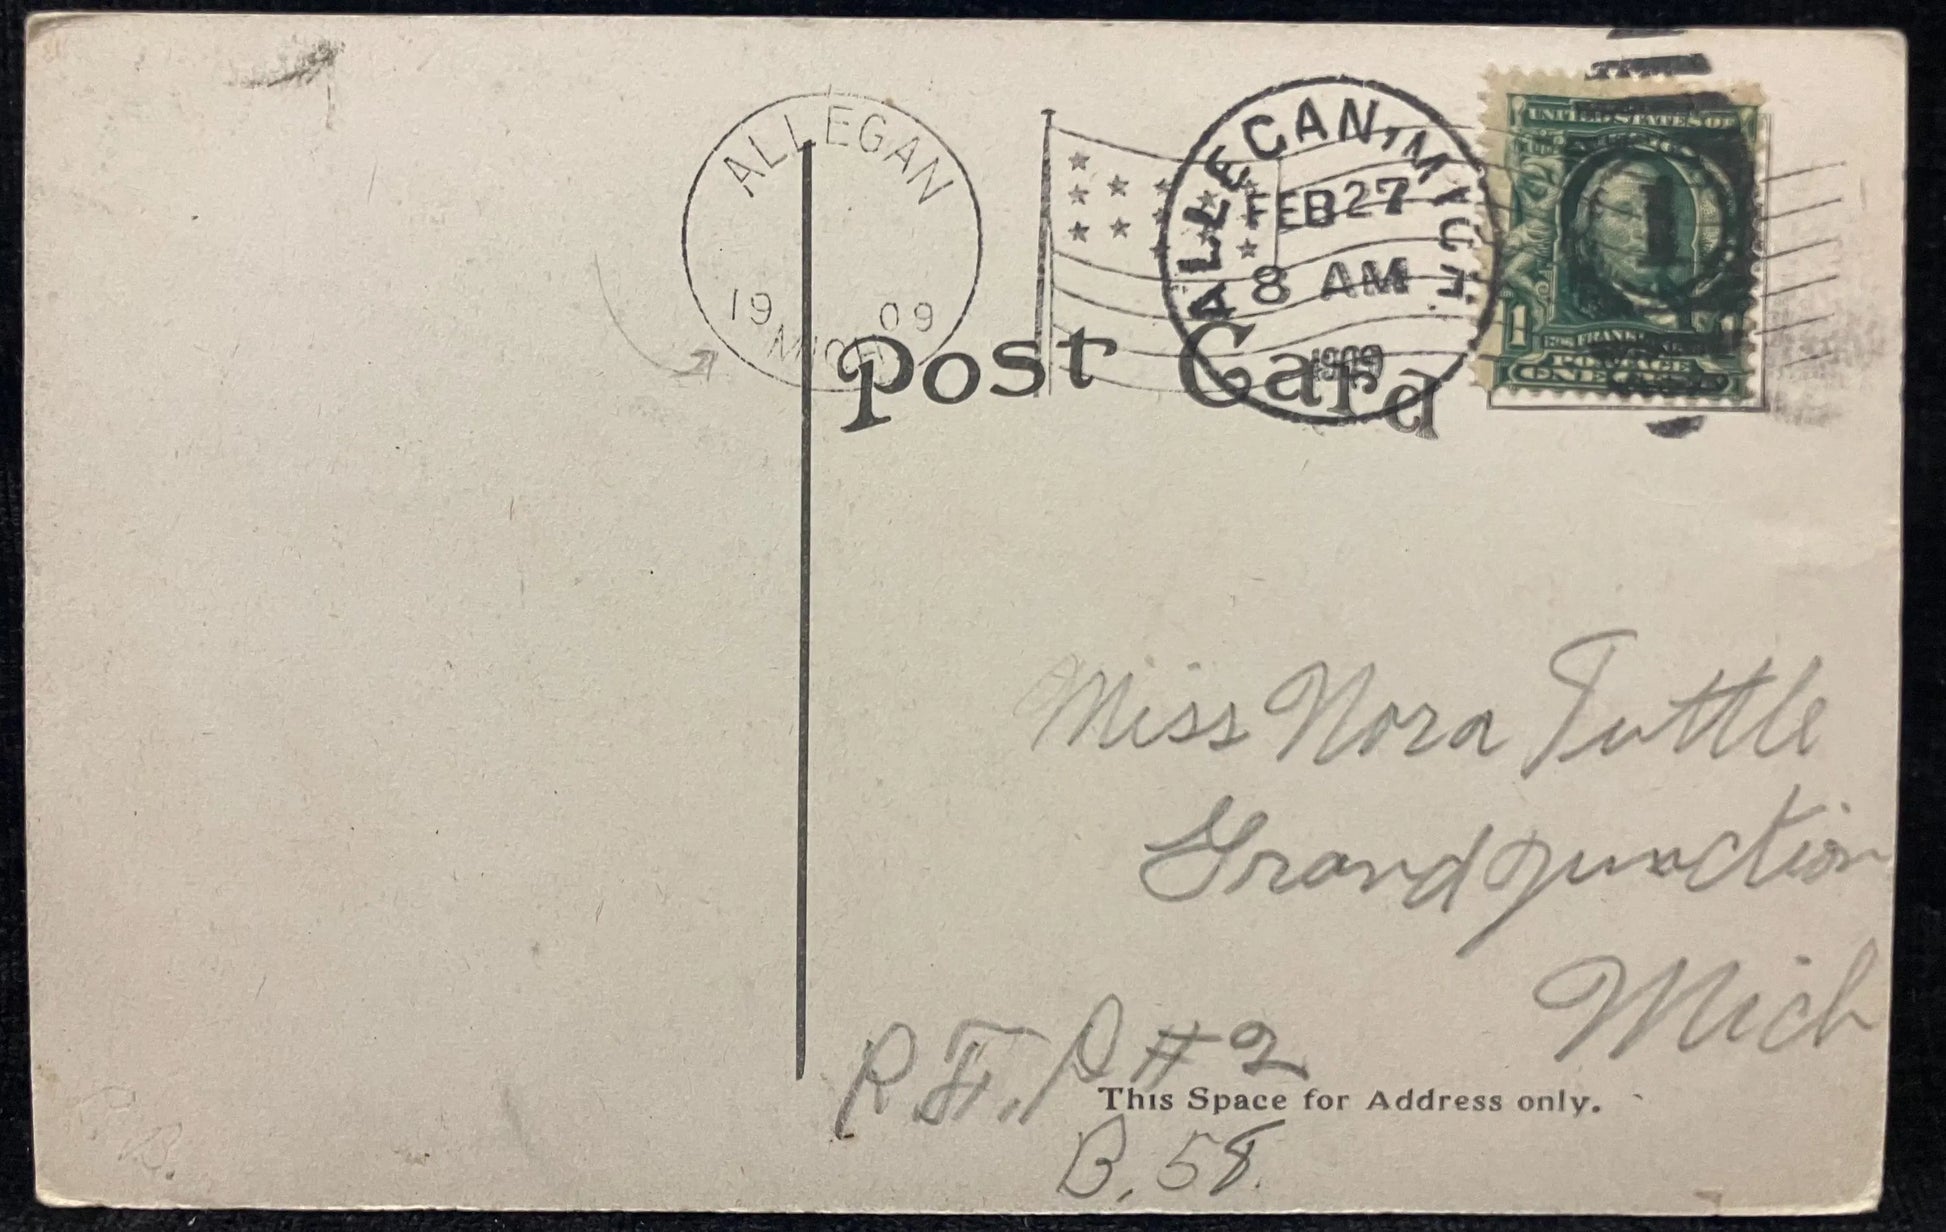 ALLEGAN
19 09
MICH
ALLEGAN, MICH.
FEB 27
8 AM
1909
UNITED STATES OF
1
1
FRANKLIN
POSTAGE
ONE
Post Card
Miss Nora Tuttle
Grand Junction
Mich
R.F.D #2
This Space for Address only.
B. 58.
B.